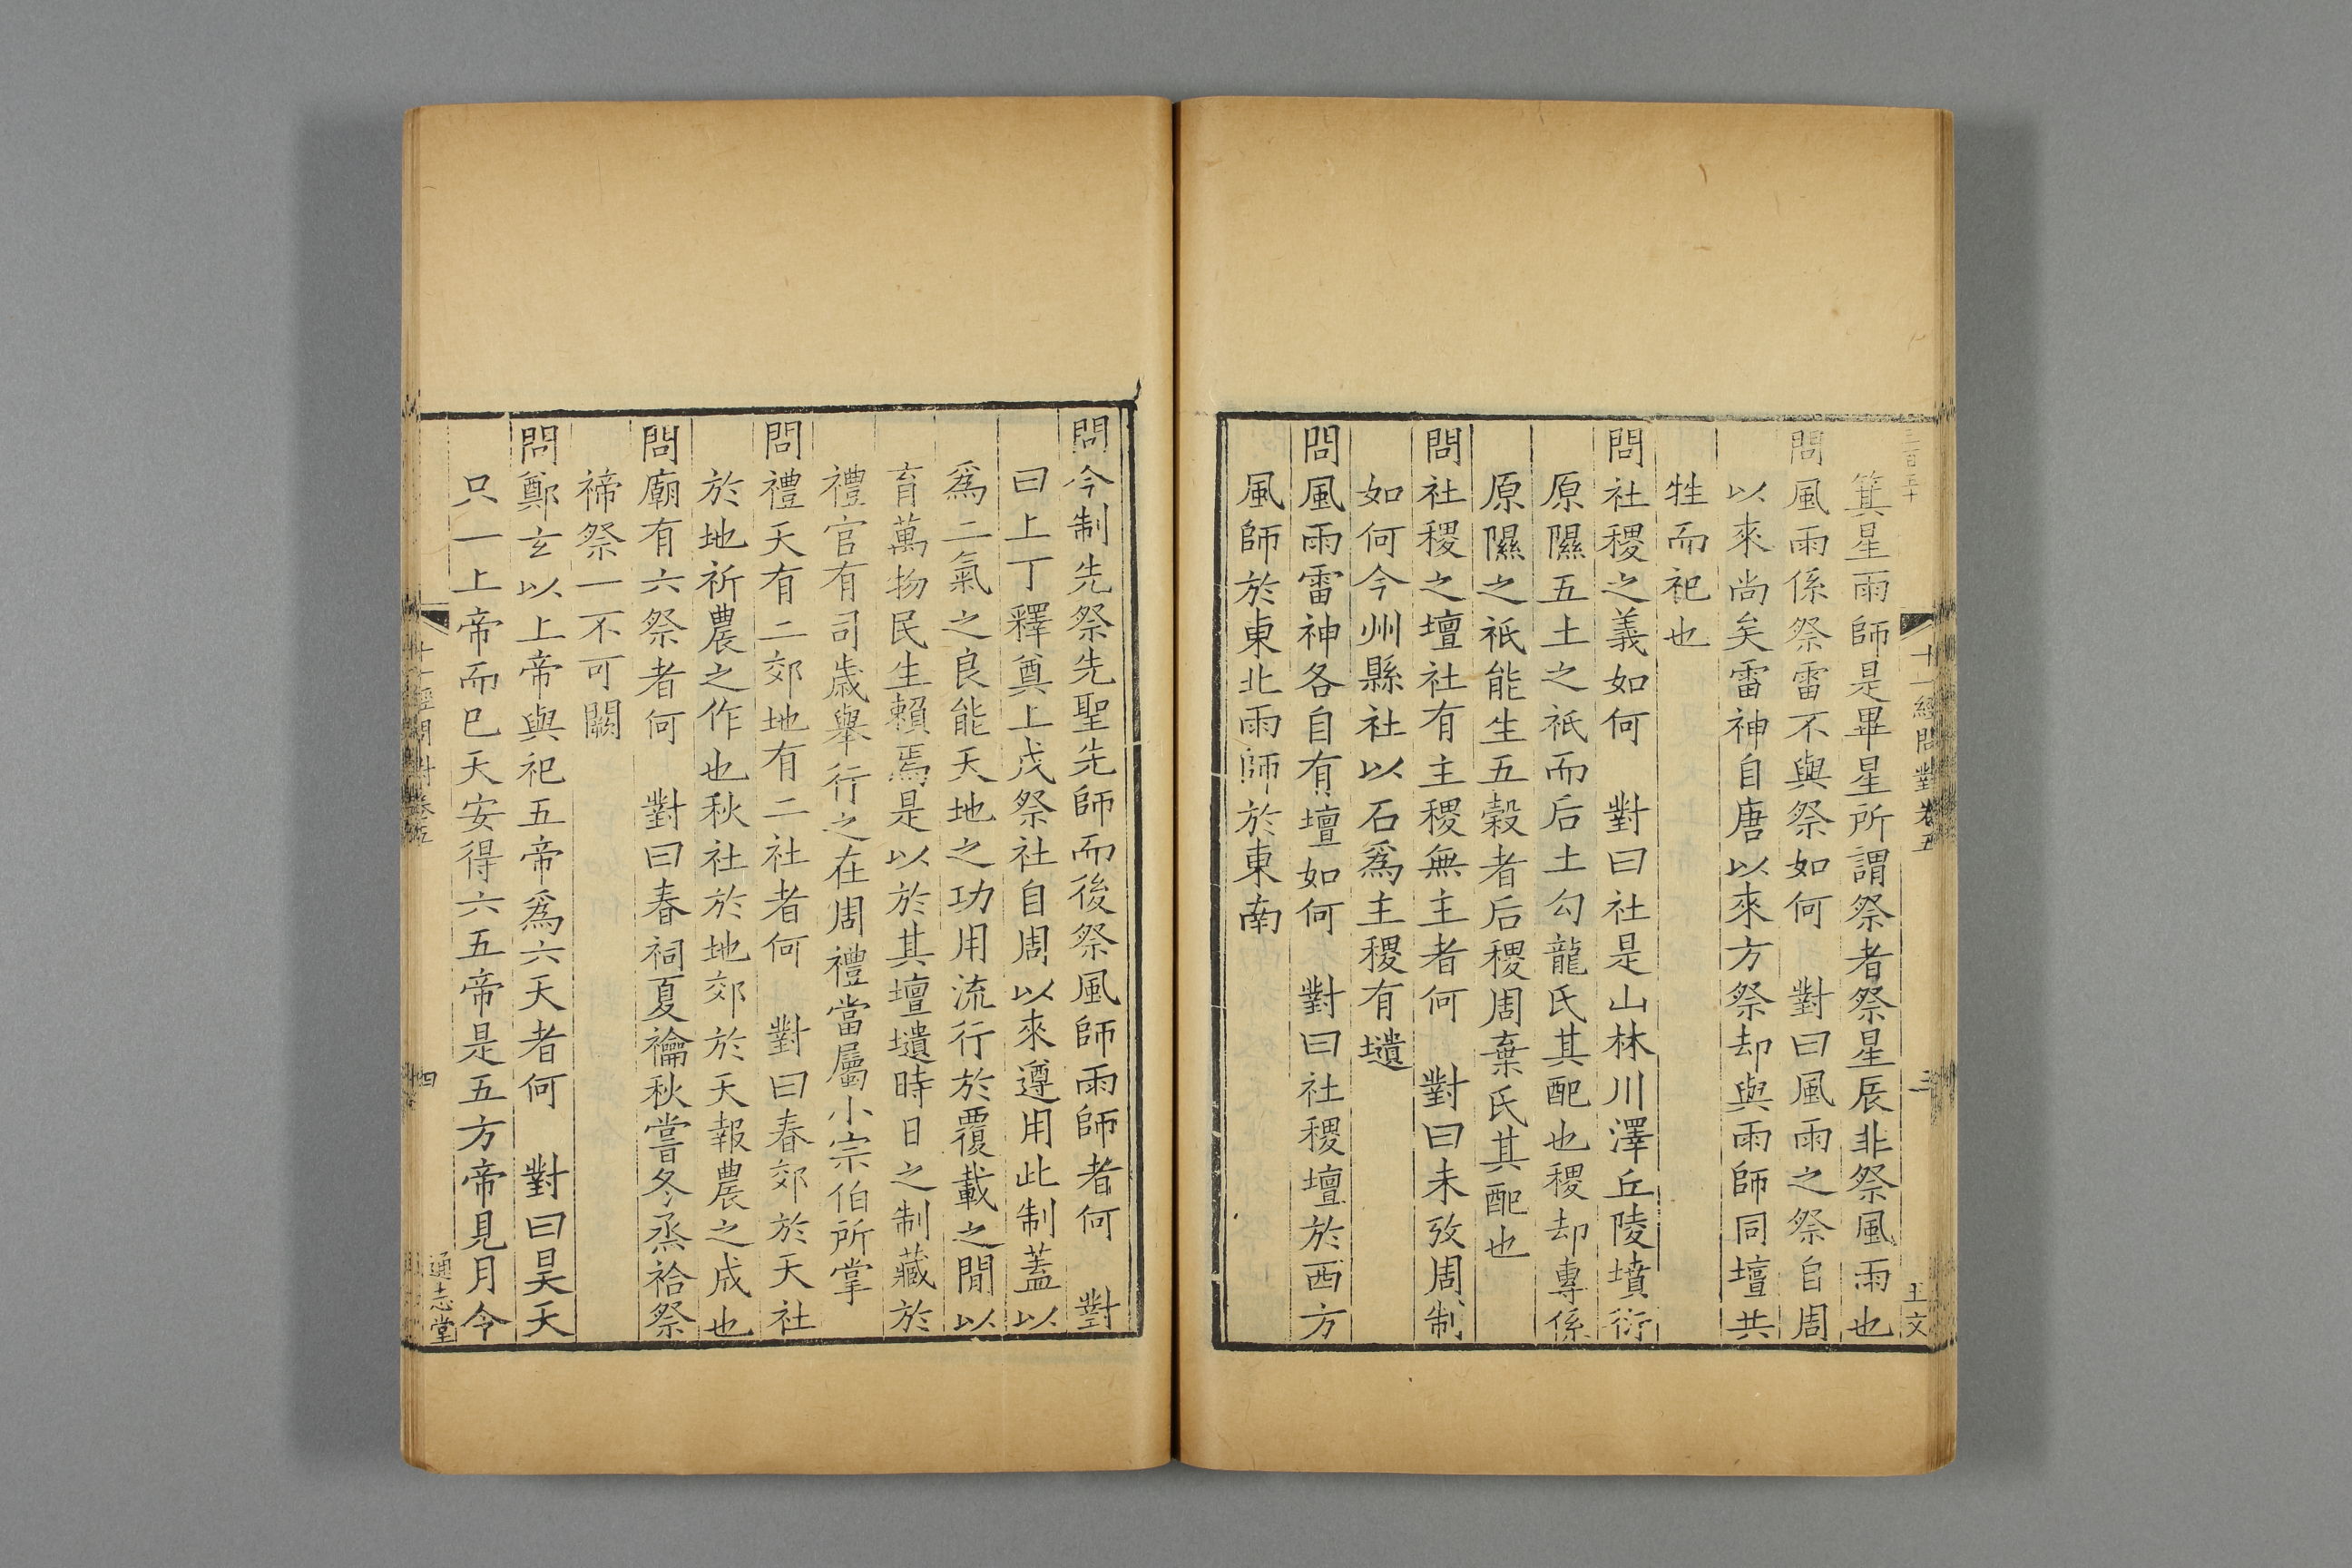 箕星雨師是畢星所謂祭者祭星辰非祭風雨也
問風雨係祭雷不與祭如何　對曰風雨之祭自周
以來尚矣雷神自唐以來方祭却與雨師同壇共
牲而祀也
問社稷之義如何　對曰社是山林川澤丘陵墳衍
原隰五土之祇而后土勾龍氏其配也稷却專係
原隰之祇能生五穀者后稷周棄氏其配也
問社稷之壇社有主稷無主者何　對曰未攷周制
如何今州縣社以石爲主稷有壝
問風雨雷神各自有壇如何　對曰社稷壇於西方
風師於東北雨師於東南
十一經問對卷五
三
王文
問今制先祭先聖先師而後祭風師雨師者何　對
曰上丁釋奠上戊祭社自周以來遵用此制蓋以
爲二氣之良能天地之功用流行於覆載之閒以
育萬物民生賴焉是以於其壇壝時日之制藏於
禮官有司歲舉行之在周禮當屬小宗伯所掌
問禮天有二郊地有二社者何　對曰春郊於天社
於地祈農之作也秋社於地郊於天報農之成也
問廟有六祭者何　對曰春祠夏禴秋嘗冬烝祫祭
禘祭一不可闕
問鄭玄以上帝與祀五帝爲六天者何　對曰昊天
只一上帝而巳天安得六五帝是五方帝見月令
十一經問對卷五
四
通志堂